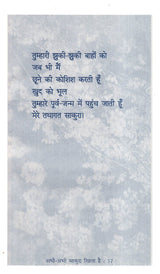 तुम्हारी झुकी-झुकी बाहों को
जब भी मैं
छूने की कोशिश करती हूँ
खुद को भूल
तुम्हारे पूर्व-जन्म में पहुंच जाती हूँ
मेरे तथागत साकुरा।
अभी-अभी साकुरा खिला है : 57